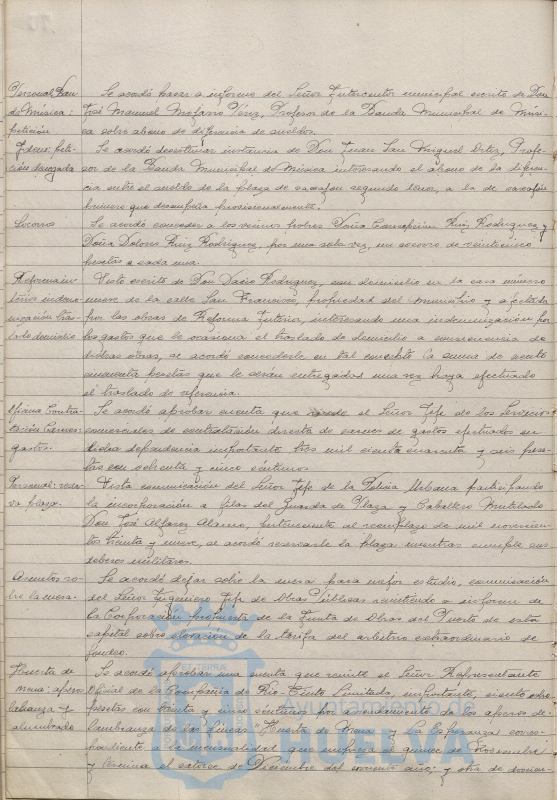 Personal Ban- Se acordó pasar a informe del Señor Interventor municipal escrito de Don
da Música: José Manuel Molfano Pérez, Profesor de la Banda Municipal de Músi-
petición ca sobre abono de diferencia de sueldos.
Idem: peti- Se acordó desestimar instancia de Don Juan San Miguel Ortiz, Profe-
ción denegada sor de la Banda Municipal de Música interesando el abono de la diferen-
cia entre el sueldo de la plaza de saxofón segundo tenor, a la de saxofón
primero que desempeña provisionalmente.
Socorros Se acordó conceder a los vecinos pobres Doña Concepción Ruiz Rodríguez y
Doña Dolores Ruiz Rodríguez, por una sola vez, un socorro de veinticinco
pesetas a cada una.
Reforma in- Visto escrito de Don Dacio Rodríguez, con domicilio en la casa número
terior: indem- nueve de la calle San Francisco, propiedad del Municipio y afectada
nización tras- por las obras de Reforma Interior, interesando una indemnización por
lado domicilio los gastos que le ocasiona el traslado de domicilio a consecuencia de
dichas obras, se acordó concederle en tal concepto la suma de ciento
cincuenta pesetas que le serán entregadas una vez haya efectuado
el traslado de referencia.
Contra- Se acordó aprobar cuenta que rinde el Señor Jefe de los Servicios
tación Carnes: comerciales de contratación directa de carnes de gastos efectuados en
gastos. dicha dependencia importante tres mil ciento cuarenta y seis pese-
tas con ochenta y cinco céntimos.
Personal: reser- Vista comunicación del Señor Jefe de la Policía Urbana participando
va plaza. la incorporación a filas del Guarda de Plaza y Caballero Mutilado
Don José Alfaro Alamo, perteneciente al reemplazo de mil novecien-
tos treinta y nueve, se acordó reservarle la plaza mientras cumple sus
deberes militares.
Asuntos so- Se acordó dejar sobre la mesa para mejor estudio, comunicación
bre la mesa. del Señor Ingeniero Jefe de Obras Públicas remitiendo a informe de
la Corporación propuesta de la Junta de Obras del Puerto de esta
capital sobre elevación de la tarifa del arbitrio extraordinario de
fondeo.
Huerta de Se acordó aprobar una cuenta que remite el Señor Representante
Mena: aperos Oficial de la Compañía de Río Tinto Limitada, importante, ciento ocho
labranza y pesetas con treinta y cinco céntimos por arrendamiento de los aperos de
alumbrado labranza de las fincas "Huerta de Mena y La Esperanza corres-
pondiente a la mensualidad que empieza el quince de Noviembre
y termina el catorce de Diciembre del corriente año; y otra de doscien-
ET TERRÆ
Ayuntamiento de
HUELVA